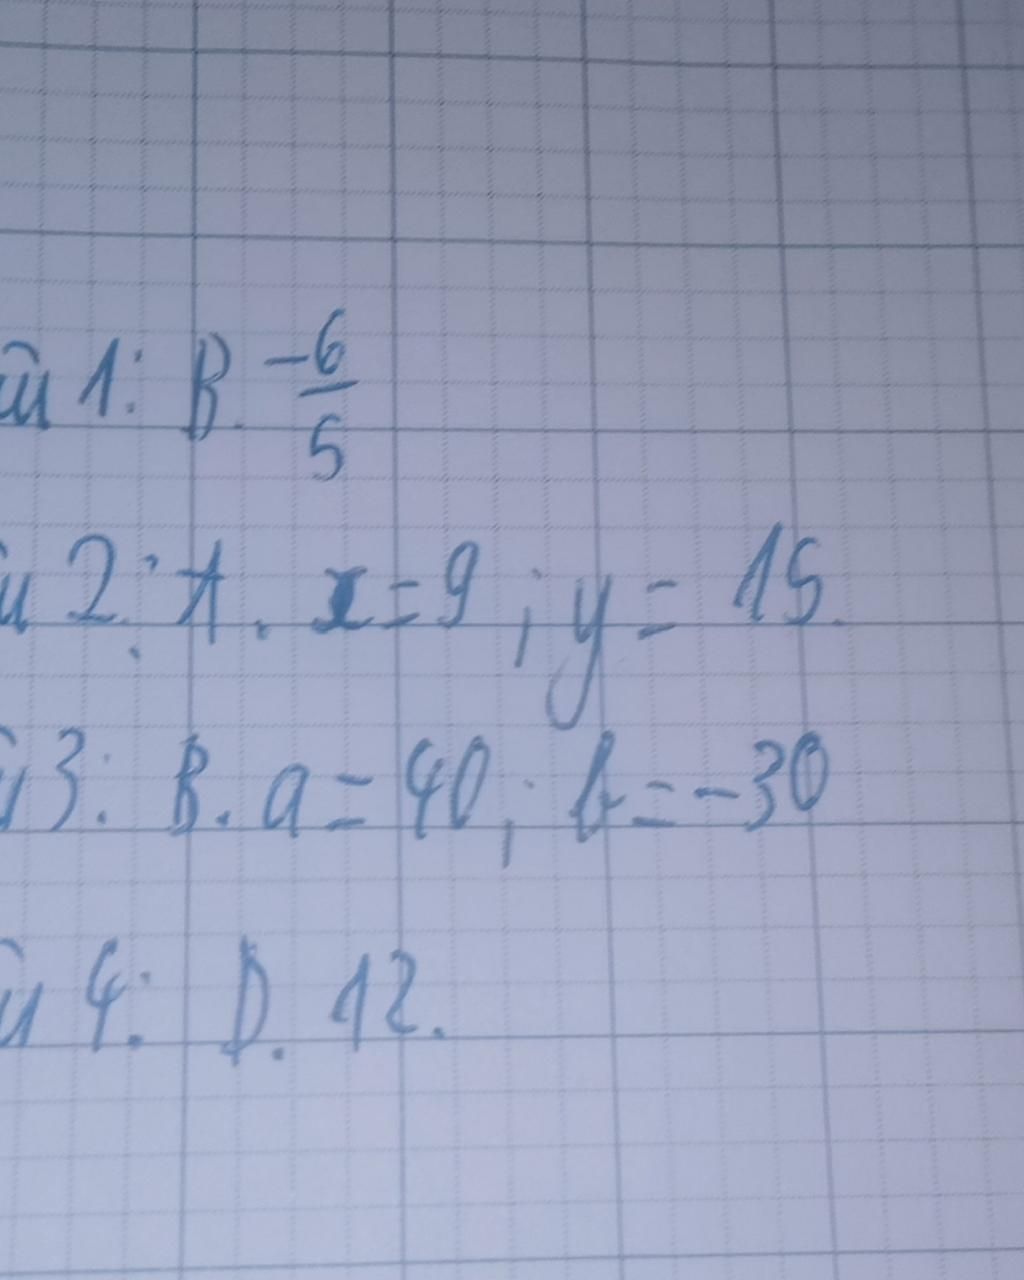 1: B. -6/5
2: A. x = 9 ; y = 15.
3: B. a = 40 ; b = -30
4: D. 12.